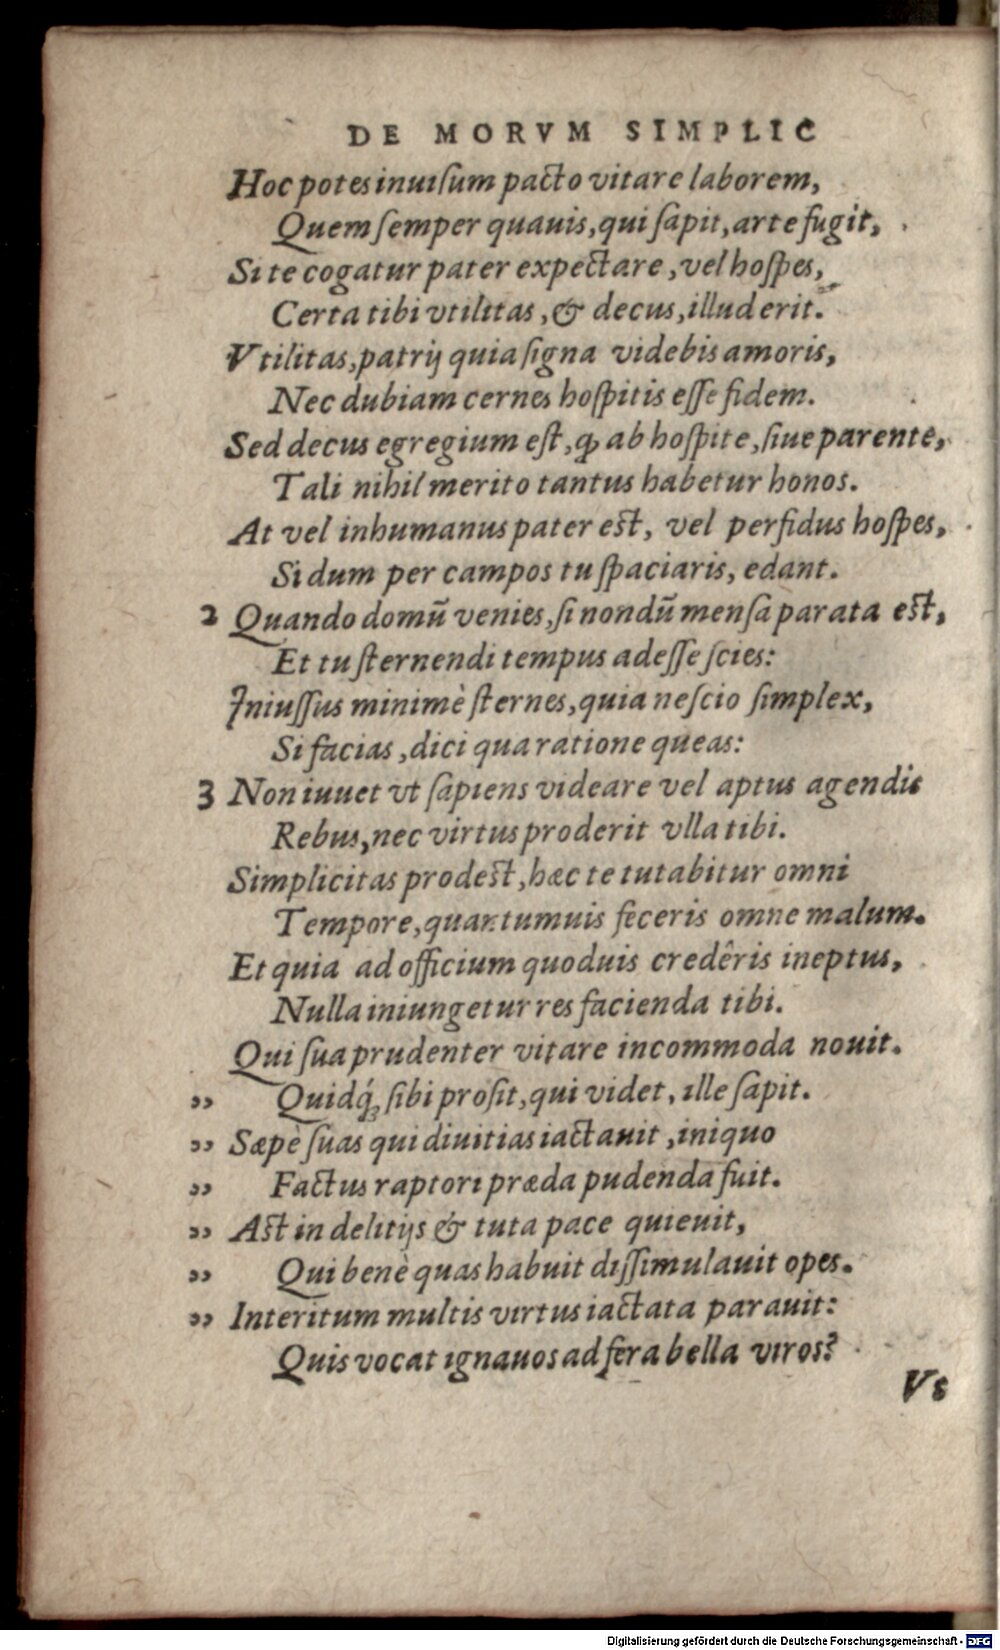 DE MORVM SIMPLIC
Hoc potes inuisum pacto vitare laborem,
Quem semper quauis, qui sapit, arte fugit,
Si te cogatur pater expectare, vel hospes,
Certa tibi vtilitas, & decus, illud erit.
Vtilitas, patrij quia signa videbis amoris,
Nec dubiam cernes hospitis esse fidem.
Sed decus egregium est, ꝙ ab hospite, siue parente,
Tali nihil merito tantus habetur honos.
At vel inhumanus pater est, vel perfidus hospes,
Si dum per campos tu spaciaris, edant.
2 Quando domū venies, si nondū mensa parata est,
Et tu sternendi tempus adesse scies:
Iniussus minimè sternes, quia nescio simplex,
Si facias, dici qua ratione queas:
3 Non iuuet vt sapiens videare vel aptus agendis
Rebus, nec virtus proderit vlla tibi.
Simplicitas prodest, hæc te tutabitur omni
Tempore, quantumuis feceris omne malum.
Et quia ad officium quoduis credêris ineptus,
Nulla iniungetur res facienda tibi.
Qui sua prudenter vitare incommoda nouit.
„ Quidq́; sibi prosit, qui videt, ille sapit.
„ Sæpè suas qui diuitias iactauit, iniquo
„ Factus raptori præda pudenda fuit.
„ Ast in delitijs & tuta pace quieuit,
„ Qui benè quas habuit dissimulauit opes.
„ Interitum multis virtus iactata parauit:
Quis vocat ignauos ad fera bella viros?
Vs
Digitalisierung gefördert durch die Deutsche Forschungsgemeinschaft - DFG